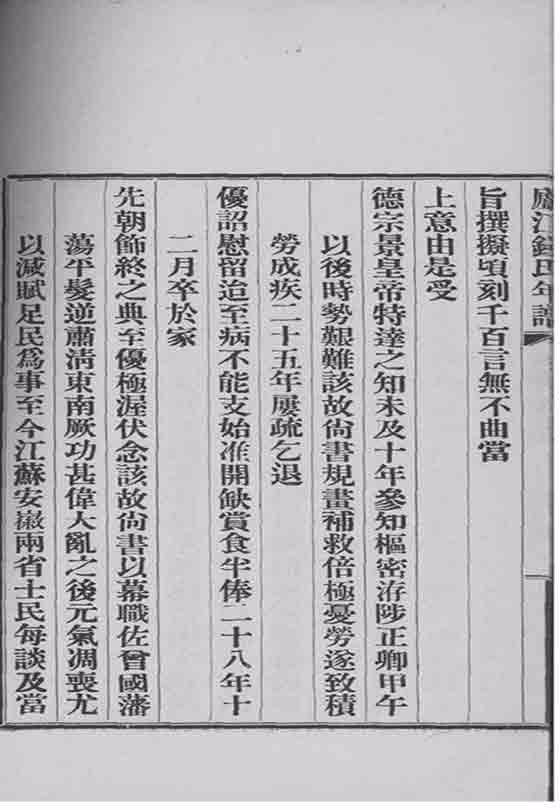 廬江錢氏年譜
旨撰擬頃刻千百言無不曲當
上意由是受
德宗景皇帝特達之知未及十年參知樞密洊陟正卿甲午
以後時勢艱難該故尚書規畫補救倍極憂勞遂致積
勞成疾二十五年屢疏乞退
優詔慰留迨至病不能支始准開缺賞食半俸二十八年十
二月卒於家
先朝飾終之典至優極渥伏念該故尚書以幕職佐曾國藩
蕩平髮逆肅清東南厥功甚偉大亂之後元氣凋喪尤
以減賦足民爲事至今江蘇安徽兩省士民每談及當